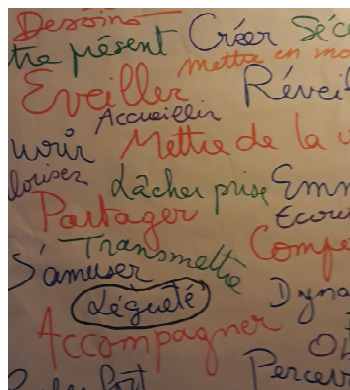 Dessoins
tre présent Créer Séc
mettre en mo
Eveiller Réveil
Accueillir
uvrir Mettre de la v
lorisez
Lâcher prise Emm
Partager Ecou
Transmettre Compe
S'amuser
Légueté Dyna
Accompagner
Ob
Percev